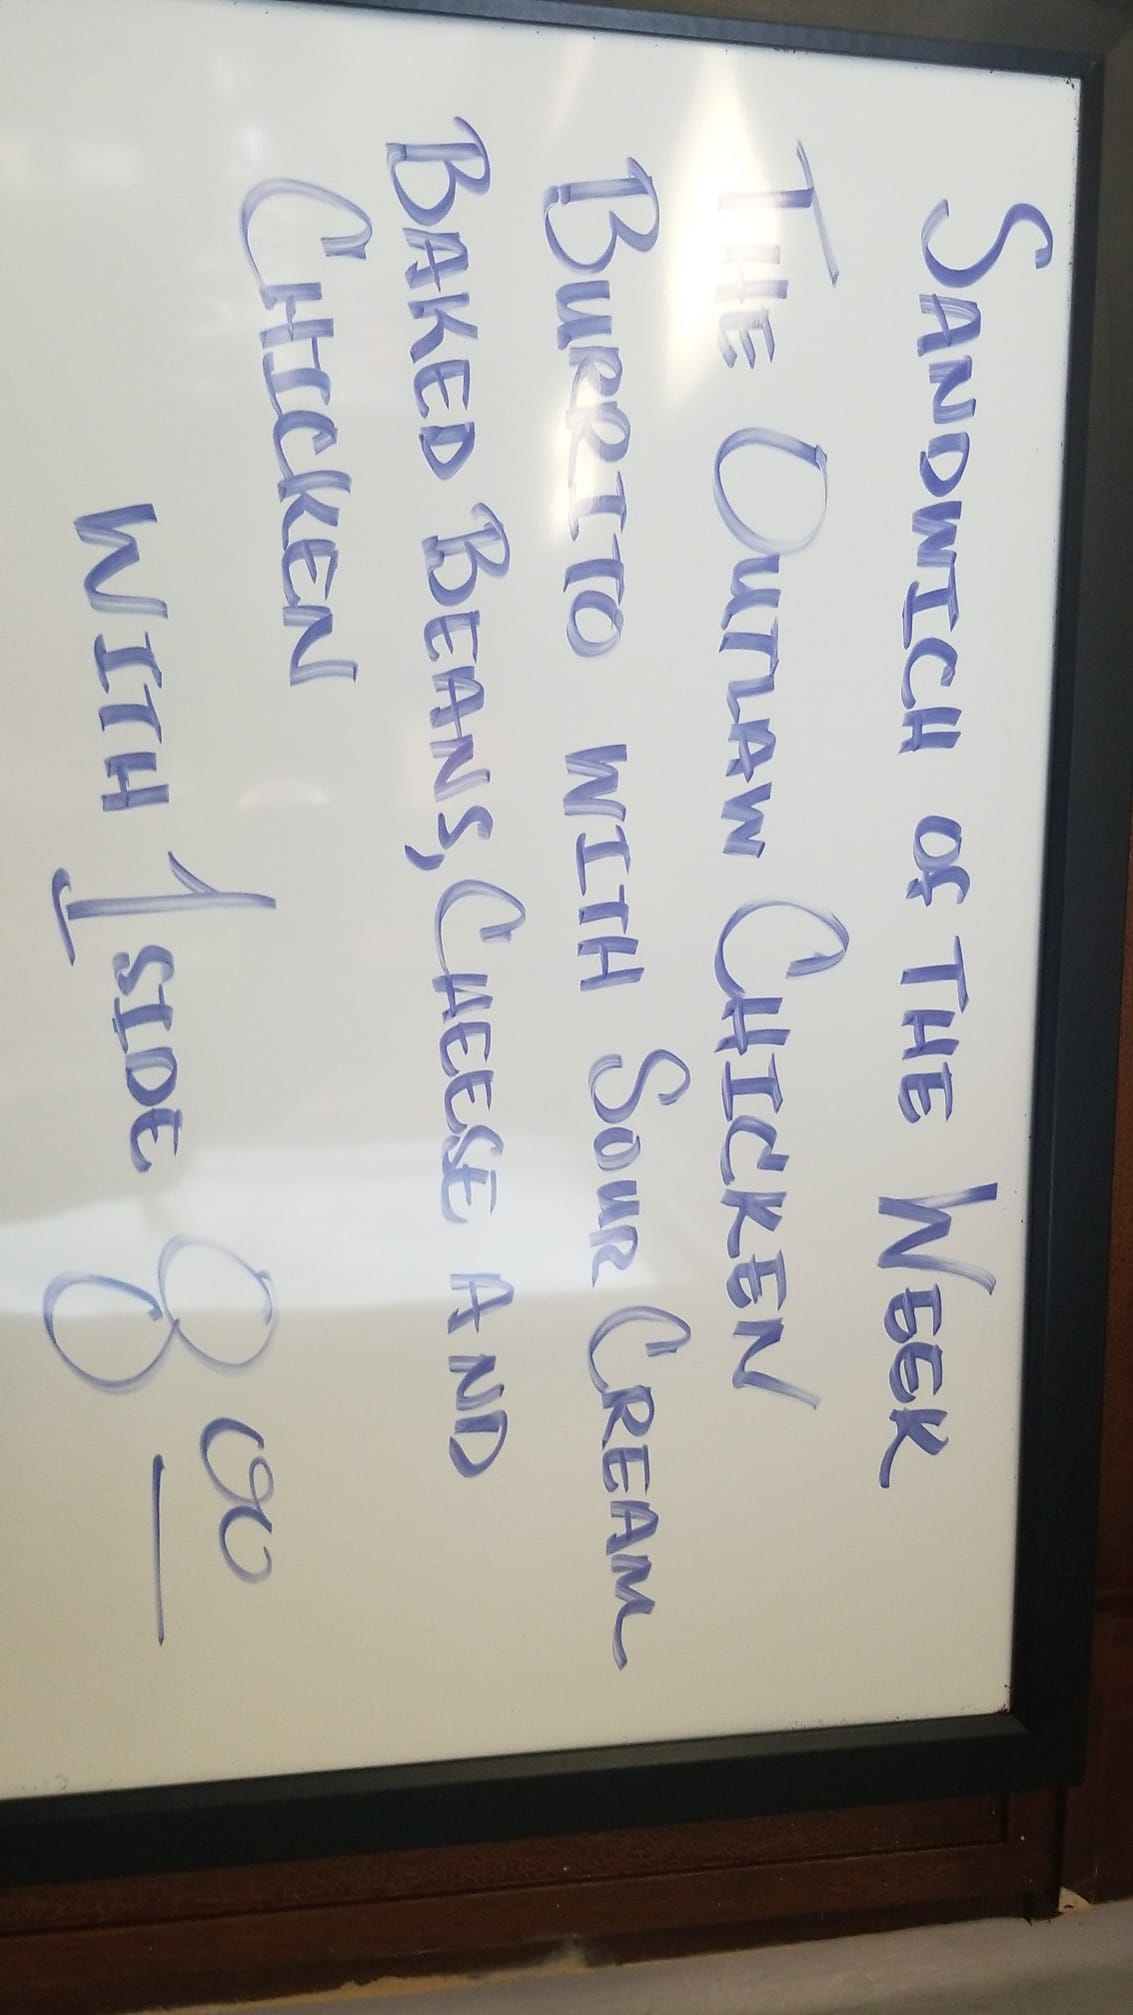 SANDWICH OF THE WEEK
THE OUTLAW CHICKEN
BURRITO WITH SOUR CREAM
BAKED BEANS, CHEESE AND
CHICKEN
WITH 1 SIDE 8 00